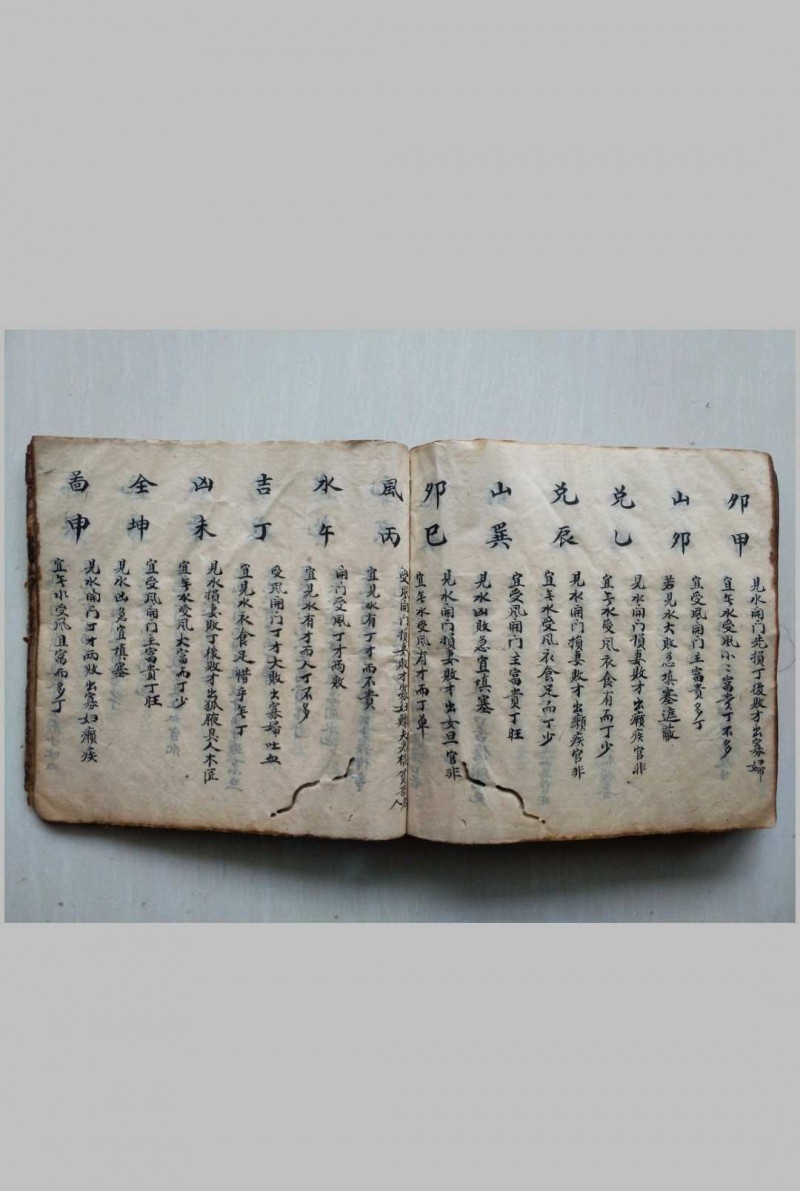 卯甲
見水開门先損丁後敗才出寡婦
宜无水受風小二富貴丁不多
山卯
宜受風開门主富貴多丁
若見水大敗急填塞遮蔽
兑乙
見水開门損妻敗才出癩疾官非
宜无水受風衣食有而丁少
兑辰
見水開门損妻敗才出癩疾官非
宜无水受風衣食足而丁少
山巽
宜受風開门主富貴丁旺
見水凶敗急宜填塞
卯巳
見水開门損妻敗才出女旦官非
宜无水受風有才而丁单
風丙
受風開门損妻敗才寡妇
宜見水有丁才而不貴
水午
開门受風丁才两敗
宜見水有才而人丁不多
吉丁
受風開门丁才大敗出寡婦吐血
宜見水衣食足惜乎无丁
凶未
見水損妻敗丁後敗才出狐腋臭人木匠
宜无水受風大富而丁少
全坤
宜受風開门主富貴丁旺
見水凶急宜填塞
啚申
見水開门丁才两敗出寡妇癩疾
宜无水受風且富而多丁